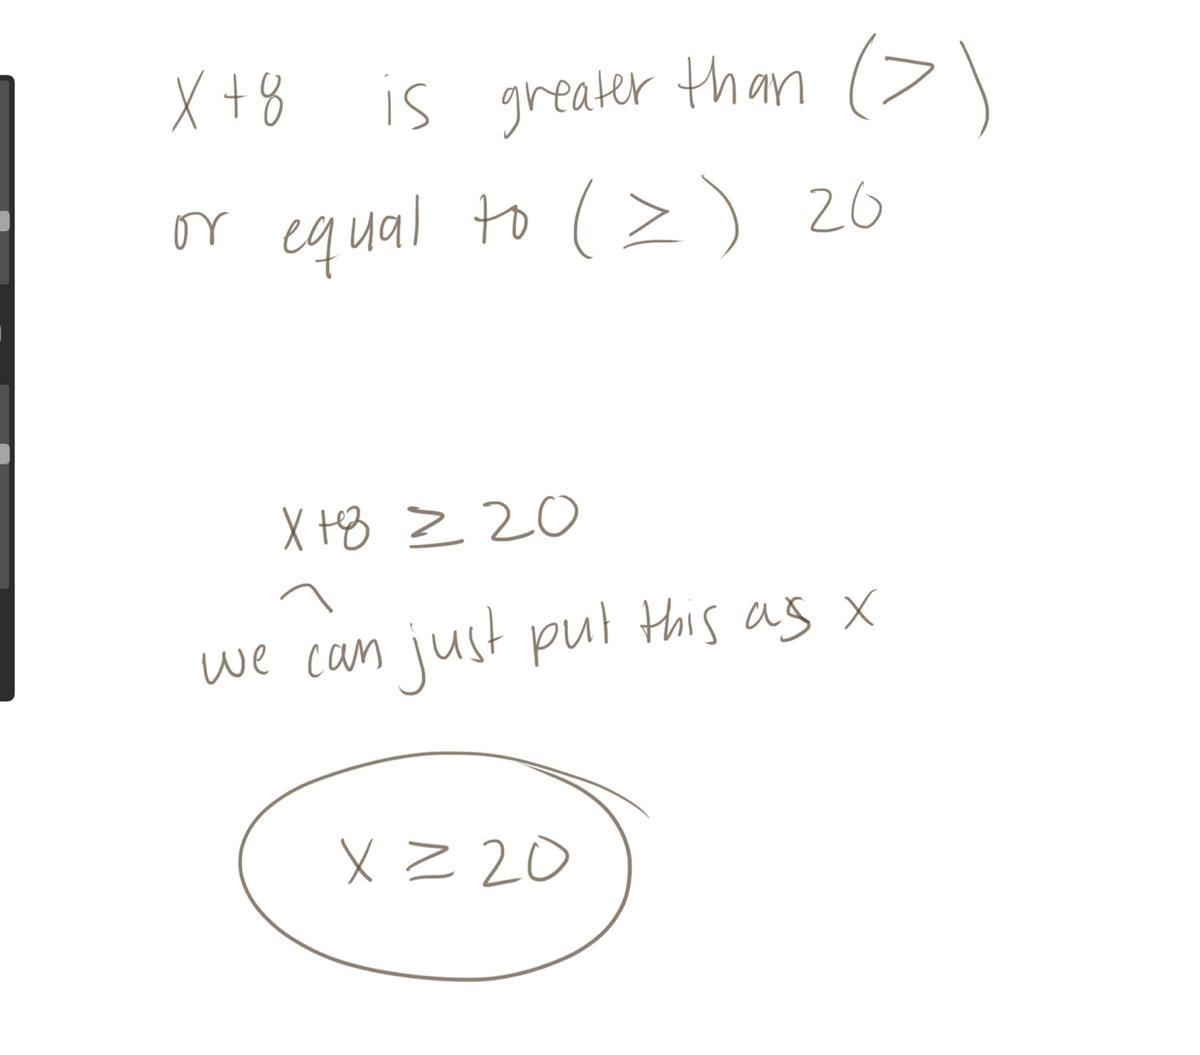 x+8 is greater than (>)
or equal to (≥) 20
x+8 ≥ 20
we can just put this as x
x ≥ 20